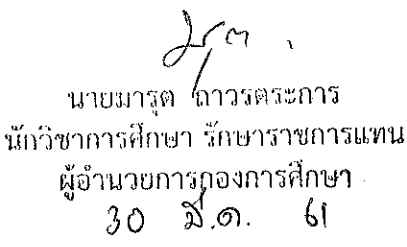 นายมารุต ถาวรตระการ
นักวิชาการศึกษา รักษาราชการแทน
ผู้อำนวยการกองการศึกษา
30 มี.ค. 61